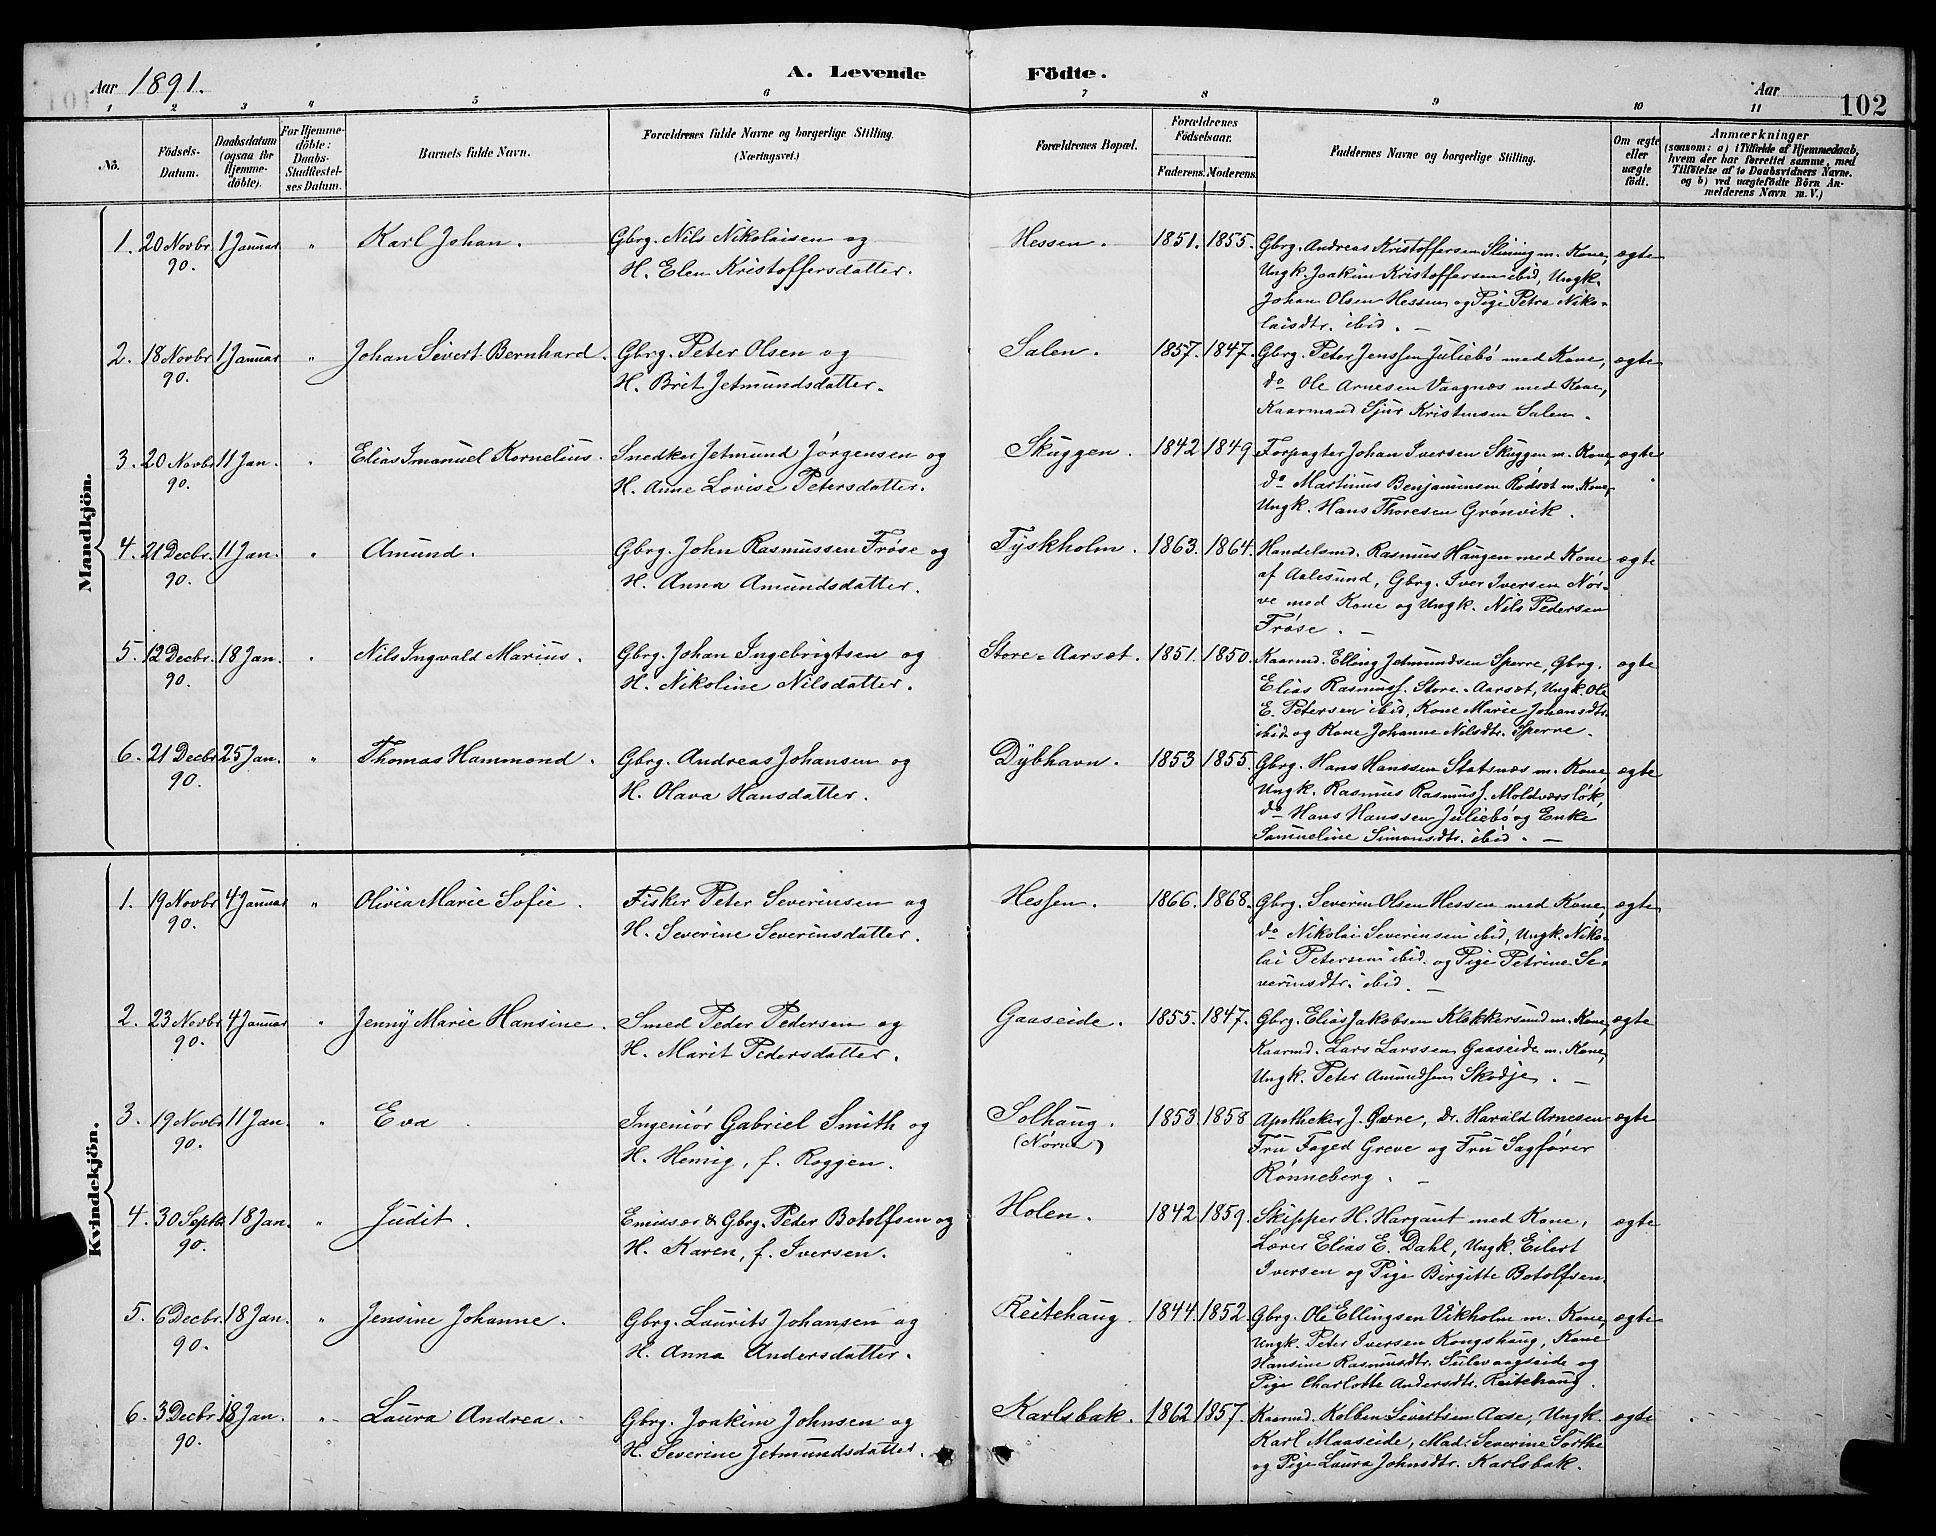 Aar 1891.
A. Levende Födte.
Aar
102
1 2 3 4 5 6 7 8 9 10 11
No.
Födsels-Datum.
Daabsdatum (ogsaa for Hjemme-döbte).
For Hjemme-döbte: Daabs-Stadfæstel-ses Datum.
Barnets fulde Navn.
Forældrenes fulde Navne og borgerlige Stilling.
(Næringsvei.)
Forældrenes Bopæl.
Forældrenes Födselsaar.
Faderens. Moderens.
Faddernes Navne og borgerlige Stilling.
Om ægte eller uægte födt.
Anmærkninger
(saasom: a) i Tilfælde af Hjemmedaab, hvem der har forrettet samme, med Tilföielse af to Daabsvidners Navne. og b) ved uægtefödte Börn An-melderens Navn m. V.)
Mandkjön.
1. 20 Novbr 1 Januar " Karl Johan. Gbrg. Nils Nikolaisen og Hessen. 1851. 1855. Gbrg. Andreas Kristoffersen Slining m. Kone, ægte
90. H. Elen Kristoffersdatter. Ungk. Joakim Kristoffersen ibid, Ungk.
Johan Olsen Hessen og Pige Petra Niko-
laisdtr. ibid. —
2. 18 Novbr 1 Januar " Johan Sivert Bernhard. Gbrg. Peter Olsen og Salen. 1857. 1847. Gbrg. Peter Jenssen Juliebö med Kone, ægte
90. H. Brit Jetmundsdatter. do Ole Arnesen Vaagnæs med Kone,
Kaarmand Sjur Kristensen Salen.
3. 20 Novbr 11 Jan. " Elias Imanuel Kornelius. Snedker Jetmund Jørgensen og Skuggen. 1842 1849 Forpagter Johan Iversen Skuggen m. Kone, ægte
90. H. Anne Lovise Petersdatter. do Martinus Benjaminsen Rødset m. Kone,
Ungk. Hans Thoresen Grønvik.
4. 21 Decbr. 11 Jan. " Amund. Gbrg. John Rasmussen Frøse og Tyskholm. 1863. 1864. Handelsmd. Rasmus Haugen med Kone ægte
90. H. Anna Amundsdatter. af Aalesund, Gbrg. Iver Iversen Nør-
ve med Kone og Ungk. Nils Pedersen
Frøse. —
5. 12 Decbr. 18 Jan. " Nils Ingvald Marius. Gbrg. Johan Ingebrigtsen og Store-Aarsæt. 1851. 1850. Kaarmd. Elling Jetmundsen Sperre, Gbrg. ægte
90. H. Nikoline Nilsdatter. Elias Rasmuss. Store-Aarsæt, Ungk. Ole
E. Petersen ibid, Kone Marie Johansdtr.
ibid. og Kone Johanne Nilsdtr. Sperre.
6. 21 Decbr 25 Jan. " Thomas Hammond. Gbrg. Andreas Johansen og Dybhavn. 1853 1855. Gbrg. Hans Hanssen Statsnæs m. Kone, ægte
90. H. Olava Hansdatter. Ungk. Rasmus Rasmuss. Moldværsløk,
do Hans Hanssen Juliebö og Enke
Samueline Simonsdtr. ibid. —
Kvindekjön.
1. 19 Novbr 4 Januar " Olivia Marie Sofie. Fisker Peter Severinsen og Hessen. 1866. 1868. Gbrg. Severin Olsen Hessen med Kone, ægte
90. H. Severine Severinsdatter. do Nikolai Severinsen ibid, Ungk. Niko-
lai Petersen ibid. og Pige Petrine Se-
verinsdtr. ibid. —
2. 23 Novbr 4 Januar " Jenny Marie Hansine. Smed Peder Pedersen og Gaaseide. 1855. 1847. Gbrg. Elias Jakobsen Klokkersund m. Kone, ægte
90. H. Marit Pedersdatter. Kaarmd. Lars Larssen Gaaseide m. Kone,
Ungk. Peter Amundsen Skodje. —
3. 19 Novbr 11 Jan. " Eva. Ingeniör Gabriel Smith og Solhaug. 1853. 1858 Apotheker J. Øwre, Dr. Harald Arnesen ægte
90. H. Hennig, f. Roggen. (Nørve) Fru Foged Greve og Fru Sagfører
Rønneberg. —
4. 30 Septr. 18 Jan. " Judit. Emissær & Gbrg. Peder Botolfsen og Holen. 1842 1859. Skipper H. Hargaut med Kone, ægte
90. H. Karen, f. Iversen. Lærer Elias E. Dahl, Ungk. Eilert
Iversen og Pige Birgitte Botolfsen.
5. 6 Decbr. 18 Jan. " Jensine Johanne. Gbrg. Laurits Johansen og Reitehaug. 1844. 1852. Gbrg. Ole Ellingsen Vikholm m. Kone, ægte
90. H. Anna Andersdatter. Ungk. Peter Iversen Kongshaug, Kone
Hansine Rasmusdtr. Sulevaagseide og
Pige Charlotte Andersdtr. Reitehaug.
6. 3 Decbr. 18 Jan. " Laura Andrea. Gbrg. Joakim Johnsen og Karlsbak. 1862 1857. Kaarmd. Kolben Sivertsen Aase, Ungk. ægte
90. H. Severine Jetmundsdatter. Karl Maaseide, Mad. Severine Sorthe
og Pige Laura Johnsdtr. Karlsbak.